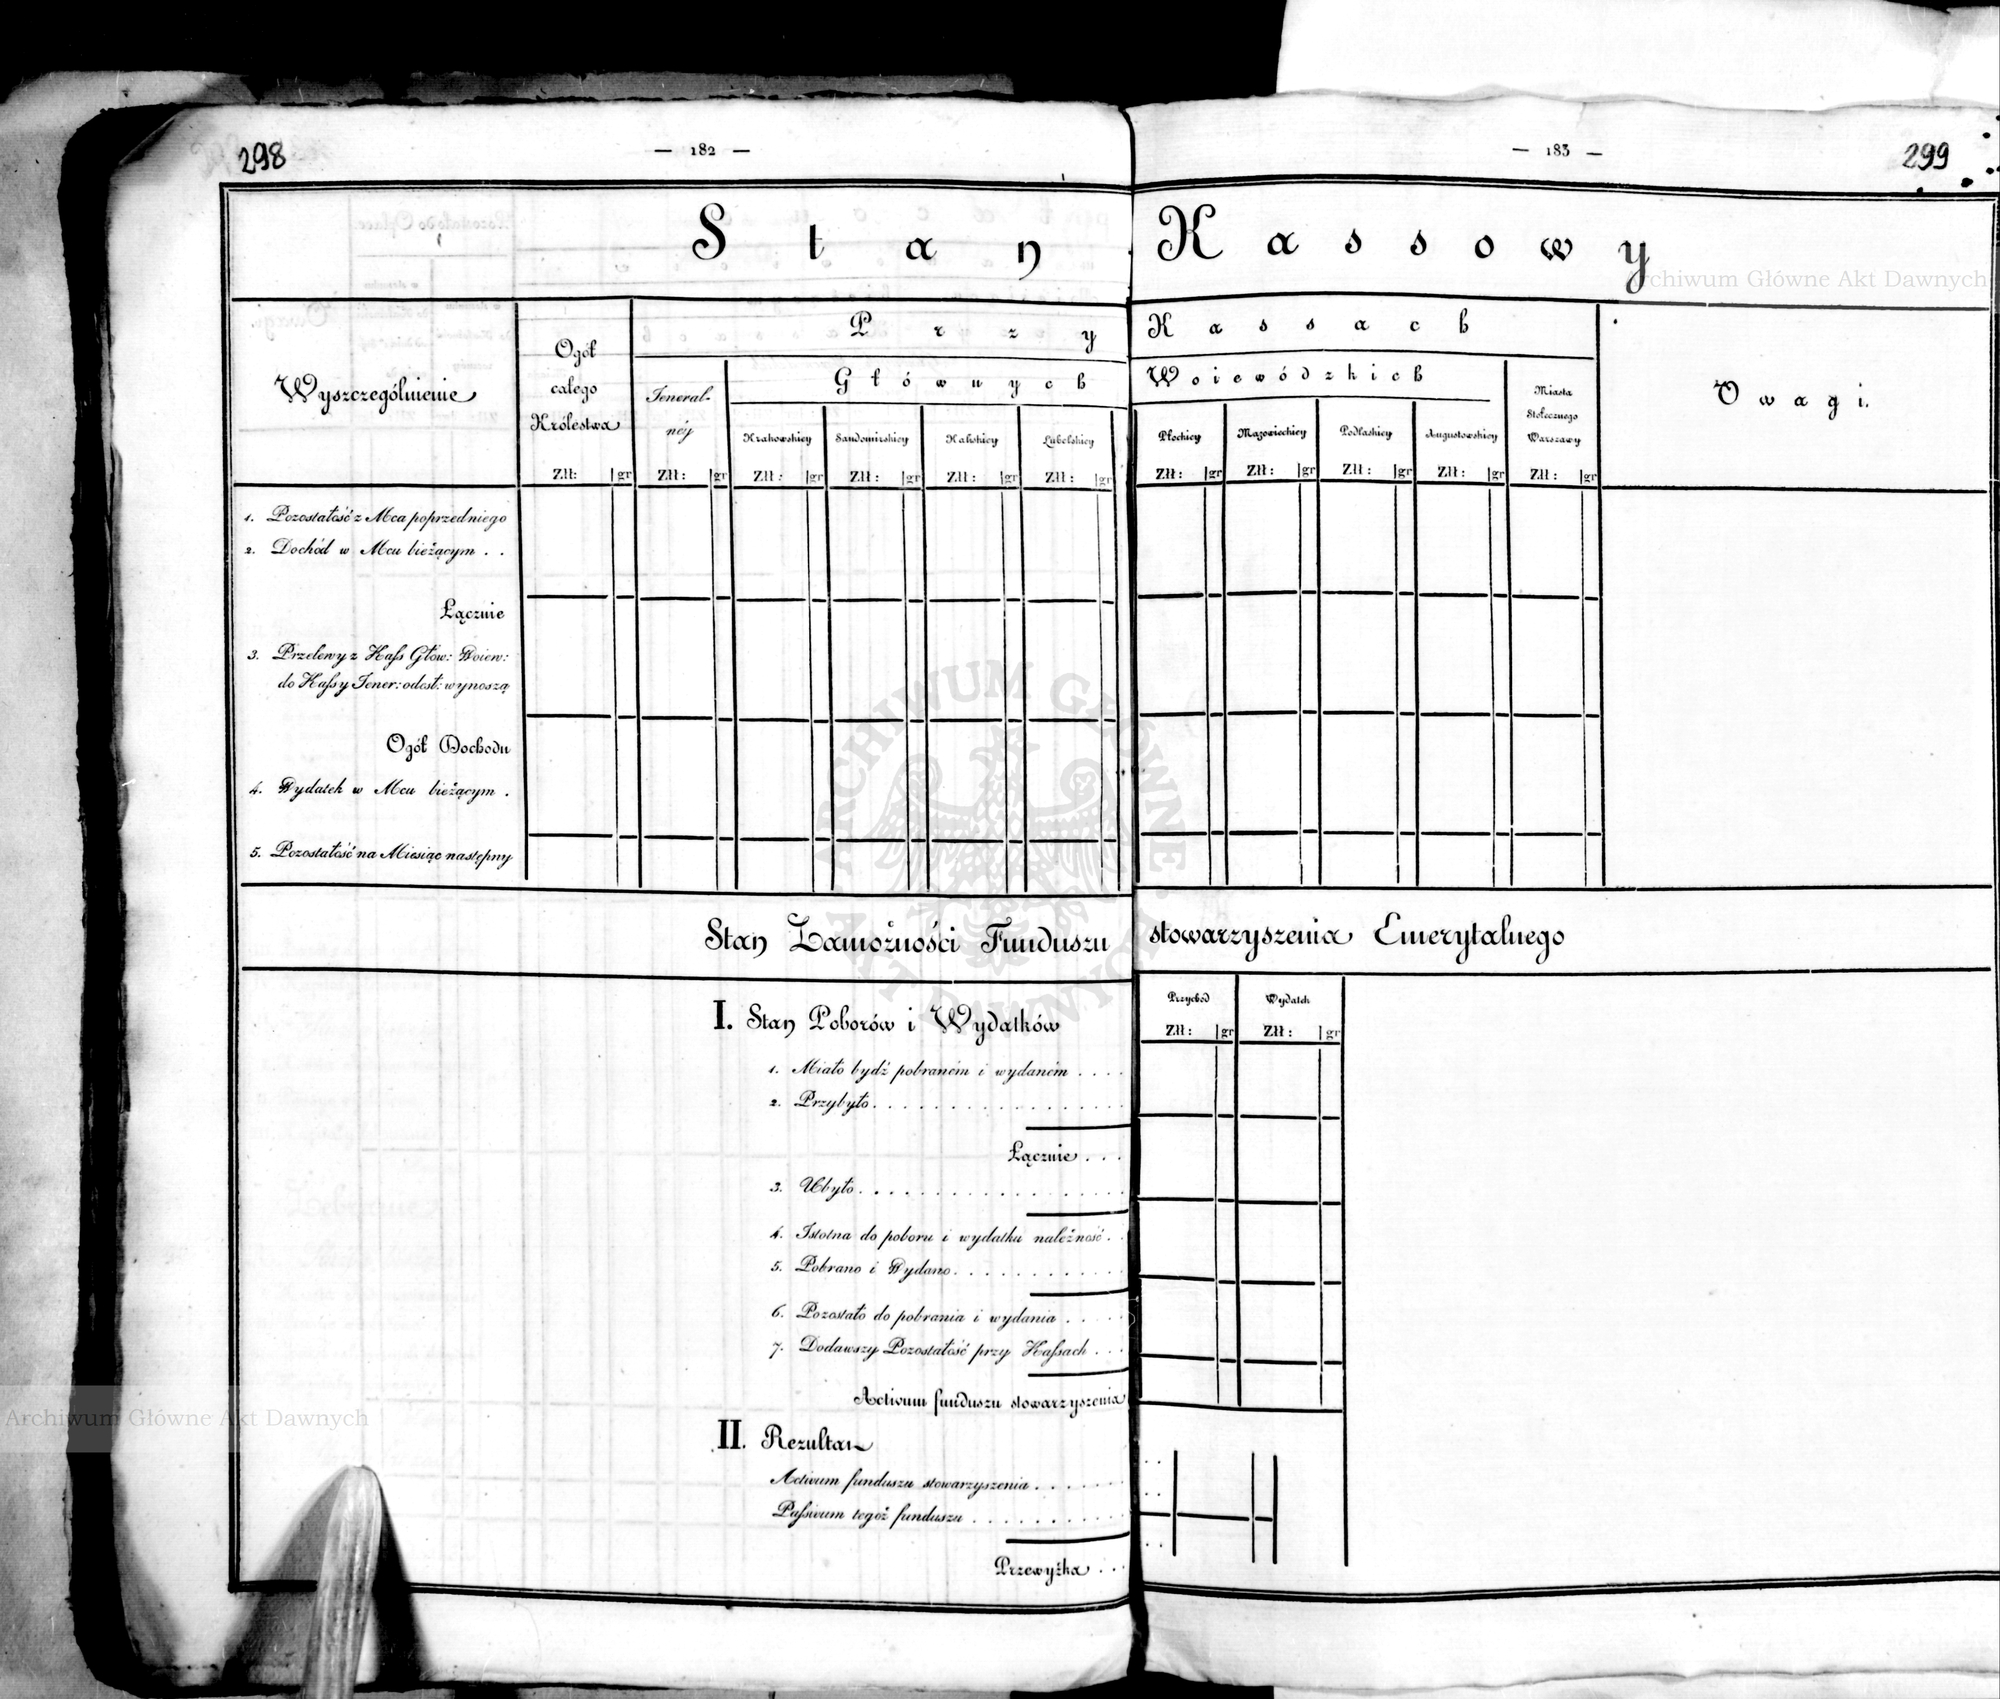 298
— 182 —
— 183 —
299
Stan Kassowy
Wyszczególnienie
Ogół
całego
Królestwa
Przy Kassach
Jeneral-
néy
Głównych Woiewódzkich
Krakowskiey
Sandomirskiey
Kaliskiey
Lubelskiey
Płockiey
Mazowieckiey
Podlaskiey
Augustowskiey
Miasta
Stołecznego
Warszawy
Uwagi.
Złł: gr Złł: gr Złł: gr Złł: gr Złł: gr Złł: gr Złł: gr Złł: gr Złł: gr Złł: gr Złł: gr
1. Pozostałość z Mca poprzedniego
2. Dochód w Mcu bieżącym . .
Łącznie
3. Przelewy z Kass Głów: Woiew:
do Kassy Jener: odesł: wynoszą
Ogół Dochodu
4. Wydatek w Mcu bieżącym .
5. Pozostałość na Miesiąc następny
Stan Zamożności Funduszu stowarzyszenia Emerytalnego
Przychod
Wydatek
Złł: gr Złł: gr
I. Stan Poborów i Wydatków
1. Miało bydź pobraném i wydaném . . . .
2. Przybyło . . . . . . . . . . . . . . .
Łącznie . . .
3. Ubyło . . . . . . . . . . . . . . . .
4. Istotna do poboru i wydatku należność . .
5. Pobrano i Wydano . . . . . . . . . . .
6. Pozostało do pobrania i wydania . . . .
7. Dodawszy Pozostałość przy Kassach . . .
Activum funduszu stowarzyszenia
II. Rezultat
Activum funduszu stowarzyszenia . . . . . . . .
Passivum tegoż funduszu . . . . . . . . . . . .
Przewyżka . . . .
Archiwum Główne Akt Dawnych
Archiwum Główne Akt Dawnych
ARCHIWUM GŁÓWNE AKT DAWNYCH